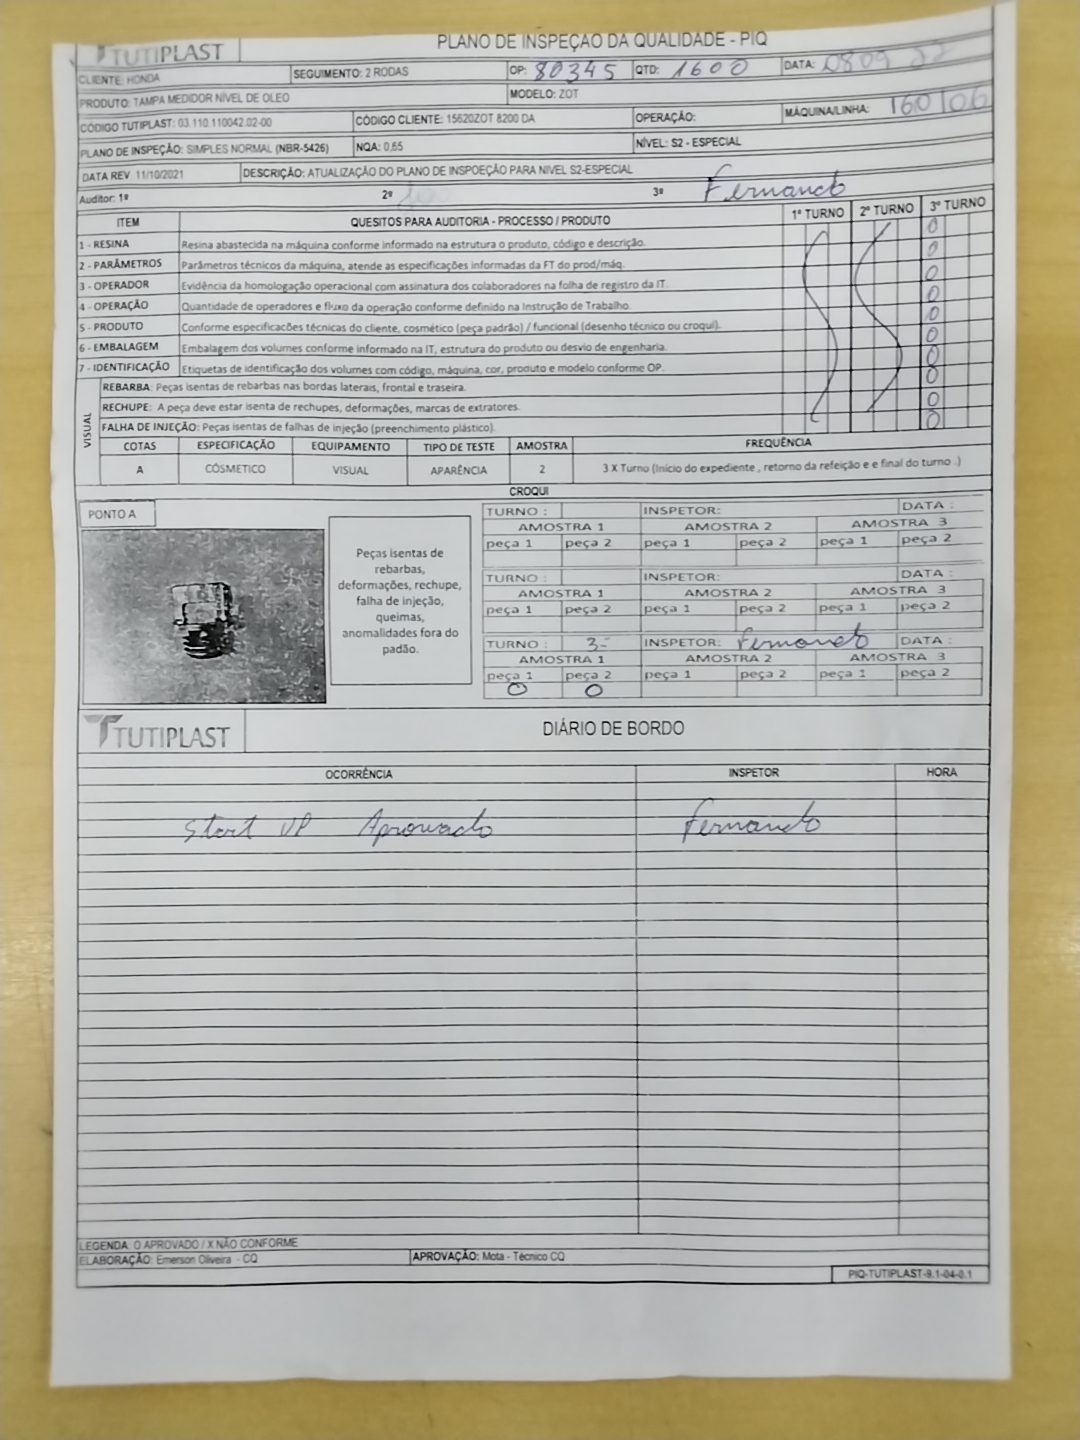 TUTIPLAST
PLANO DE INSPEÇÃO DA QUALIDADE - PIQ
CLIENTE: HONDA SEGUIMENTO: 2 RODAS OP: 80345 QTD: 1600 DATA: 08 09 22
PRODUTO: TAMPA MEDIDOR NÍVEL DE OLEO MODELO: ZOT
CÓDIGO TUTIPLAST: 03.110.110042.02-00 CÓDIGO CLIENTE: 15620ZOT 8200 DA OPERAÇÃO: MÁQUINA/LINHA: 160/06
PLANO DE INSPEÇÃO: SIMPLES NORMAL (NBR-5426) NQA: 0,65 NÍVEL: S2 - ESPECIAL
DATA REV. 11/10/2021 DESCRIÇÃO: ATUALIZAÇÃO DO PLANO DE INSPOEÇÃO PARA NIVEL S2-ESPECIAL
Auditor: 1º 2º 3º Fernando
ITEM QUESITOS PARA AUDITORIA - PROCESSO / PRODUTO 1º TURNO 2º TURNO 3º TURNO
1 - RESINA Resina abastecida na máquina conforme informado na estrutura o produto, código e descrição. O
2 - PARÂMETROS Parâmetros técnicos da máquina, atende as especificações informadas da FT do prod/máq. O
3 - OPERADOR Evidência da homologação operacional com assinatura dos colaboradores na folha de registro da IT. O
4 - OPERAÇÃO Quantidade de operadores e fluxo da operação conforme definido na Instrução de Trabalho. O
5 - PRODUTO Conforme especificacões técnicas do cliente, cosmético (peça padrão) / funcional (desenho técnico ou croqui). O
6 - EMBALAGEM Embalagem dos volumes conforme informado na IT, estrutura do produto ou desvio de engenharia. O
7 - IDENTIFICAÇÃO Etiquetas de identificação dos volumes com código, máquina, cor, produto e modelo conforme OP. O
VISUAL
REBARBA: Peças isentas de rebarbas nas bordas laterais, frontal e traseira. O
RECHUPE: A peça deve estar isenta de rechupes, deformações, marcas de extratores. O
FALHA DE INJEÇÃO: Peças isentas de falhas de injeção (preenchimento plástico). O
COTAS ESPECIFICAÇÃO EQUIPAMENTO TIPO DE TESTE AMOSTRA FREQUÊNCIA
A CÓSMETICO VISUAL APARÊNCIA 2 3 X Turno (Início do expediente , retorno da refeição e e final do turno .)
CROQUI
PONTO A
Peças isentas de
rebarbas,
deformações, rechupe,
falha de injeção,
queimas,
anomalidades fora do
padão.
TURNO : INSPETOR: DATA :
AMOSTRA 1 AMOSTRA 2 AMOSTRA 3
peça 1 peça 2 peça 1 peça 2 peça 1 peça 2
TURNO : INSPETOR: DATA :
AMOSTRA 1 AMOSTRA 2 AMOSTRA 3
peça 1 peça 2 peça 1 peça 2 peça 1 peça 2
TURNO : 3- INSPETOR: Fernando DATA :
AMOSTRA 1 AMOSTRA 2 AMOSTRA 3
peça 1 peça 2 peça 1 peça 2 peça 1 peça 2
O O
TUTIPLAST DIÁRIO DE BORDO
OCORRÊNCIA INSPETOR HORA
Start UP Aprovado Fernando
LEGENDA: O APROVADO / X NÃO CONFORME
ELABORAÇÃO: Emerson Oliveira - CQ APROVAÇÃO: Mota - Técnico CQ
PIQ-TUTIPLAST-9.1-04-0.1